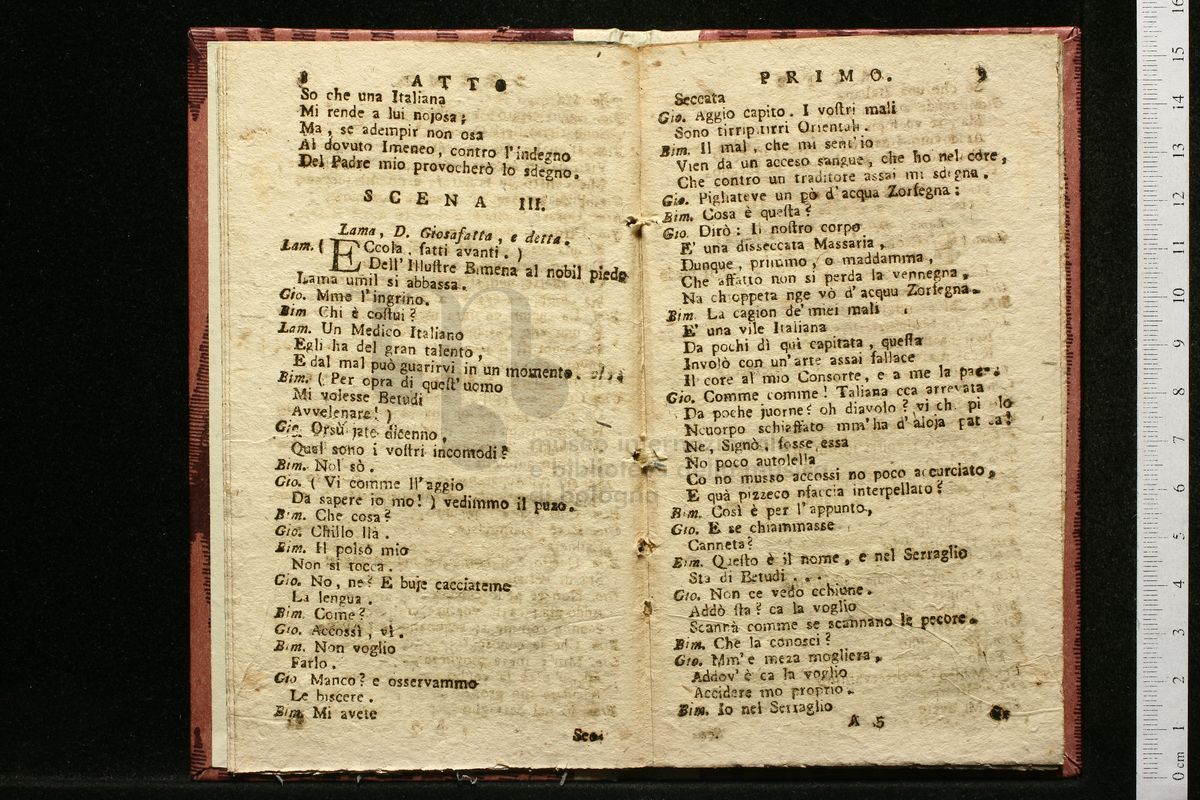 8 ATTO
So che una Italiana
Mi rende a lui nojosa;
Ma, se adempir non osa
Al dovuto Imeneo, contro l'indegno
Del Padre mio provocherò lo sdegno.
SCENA III.
Lama, D. Giosafatta, e detta.
Lam. (ECcola, fatti avanti.)
Dell'Illustre Bimena al nobil piede
Lama umil si abbassa.
Gio. Mme l'ingrino.
Bim Chi è costui?
Lam. Un Medico Italiano
Egli ha del gran talento,
E dal mal può guarirvi in un momento.
Bim. (Per opra di quest'uomo
Mi volesse Betudi
Avvelenare!)
Gio. Orsù jate dicenno,
Qual sono i vostri incomodi?
Bim. Nol sò.
Gio. (Vi comme ll'aggio
Da sapere io mo!) vedimmo il puzo.
Bim. Che cosa?
Gio. Chillo llà.
Bim. Il polso mio
Non si tocca.
Gio. No, ne? E buje cacciateme
La lengua.
Bim. Come?
Gio. Accossì, vì.
Bim. Non voglio
Farlo.
Gio Manco? e osservammo
Le biscere.
Bim. Mi avete
Sec-
PRIMO. 9
Seccata
Gio. Aggio capito. I vostri mali
Sono tirripitirri Orientali.
Bim. Il mal, che mi sent'io
Vien da un acceso sangue, che ho nel core,
Che contro un traditore assai mi sdegna.
Gio. Pigliateve un pò d'acqua Zorfegna:
Bim. Cosa è questa?
Gio. Dirò: Il nostro corpo
E' una disseccata Massaria,
Dunque, primmo, o maddamma,
Che affatto non si perda la vennegna,
Na chioppeta nge vò d'acqua Zorfegna.
Bim. La cagion de' miei mali
E' una vile Italiana
Da pochi dì quì capitata, questa
Involò con un'arte assai fallace
Il core al mio Consorte, e a me la pace.
Gio. Comme comme! Taliana cca arrevata
Da poche juorne? oh diavolo? vi che
Ncuorpo schiaffato mm'ha d'aloja
Ne, Signò, fosse essa
No poco autolella
Co no musso accossi no poco accurciato,
E quà pizzeco nfaccia interpellato?
Bim. Così è per l'appunto,
Gio. E se chiammasse
Canneta?
Bim. Questo è il nome, e nel Serraglio
Sta di Betudi . . .
Gio. Non ce vedo cchiune.
Addò sta? ca la voglio
Scannà comme se scannano le pecore.
Bim. Che la conosci?
Gio. Mm'e meza mogliera,
Addov'è ca la voglio
Accidere mo proprio.
Bim. Io nel Serraglio
A 5
museo internazionale
e biblioteca della musica
di bologna
16
15
14
13
12
11
10
9
8
7
6
5
4
3
2
1
0 cm